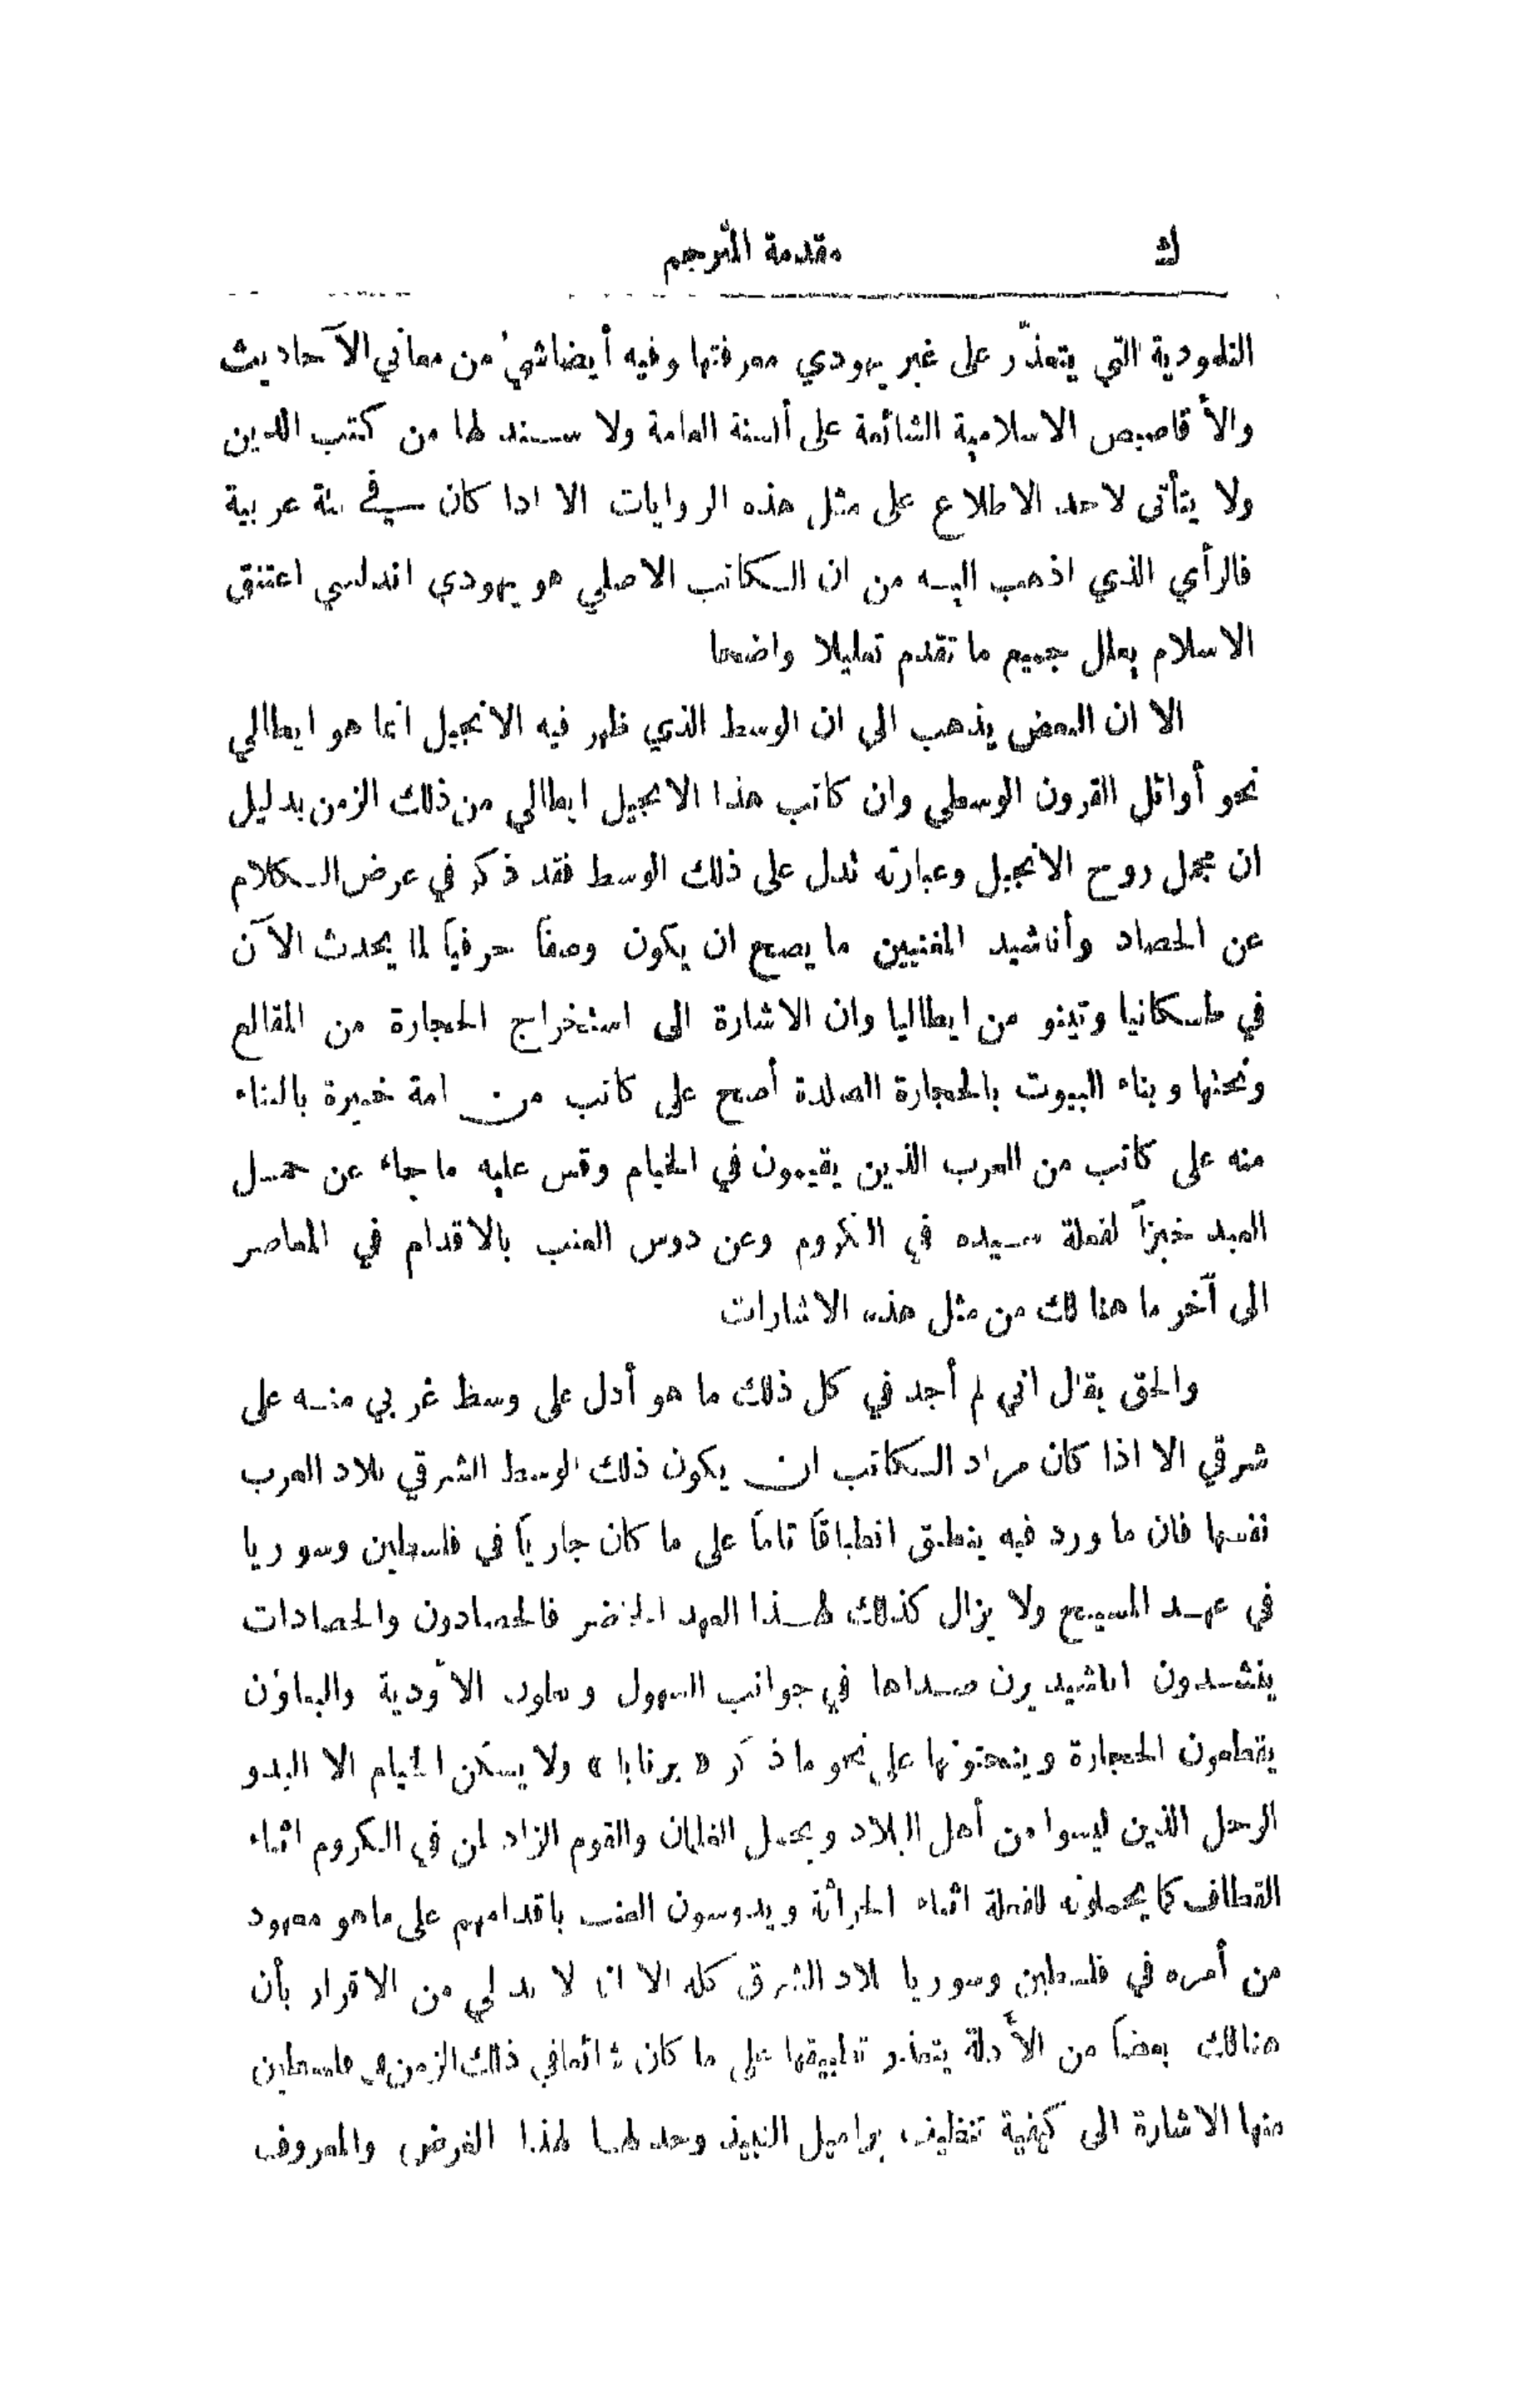 ك مقدمة المترجم
التلمودية التي يتعذّر على غير يهودي معرفتها وفيه أيضا شيءٌ من معاني الآحاديث
والأقاصيص الاسلامية الشائعة على ألسنة العامة ولا سند لها من كتب الدين
ولا يتأتى لاحد الاطلاع على مثل هذه الروايات الا اذا كان في بيئة عربية
فالرأي الذي اذهب اليه من ان الكاتب الاصلي هو يهودي اندلسي اعتنق
الاسلام يعلل جميع ما تقدم تعليلا واضحا
الا ان البعض يذهب الى ان الوسط الذي ظهر فيه الانجيل انما هو ايطالي
نحو أوائل القرون الوسطى وان كاتب هذا الانجيل ايطالي من ذلك الزمن بدليل
ان مجمل روح الانجيل وعبارته تدل على ذلك الوسط فقد ذكر في عرض الكلام
عن الحصاد وأناشيد المغنيين ما يصح ان يكون وصفاً حرفياً لما يحدث الآن
في طسكانيا وتينو من ايطاليا وان الاشارة الى استخراج الحجارة من المقالع
ونحتها وبناء البيوت بالحجارة الصلدة أصح على كاتب من امة خبيرة بالبناء
منه على كاتب من العرب الذين يقيمون في الخيام وقس عليه ما جاء عن حمل
العبد خبزاً لفعلة سيده في الكروم وعن دوس العنب بالاقدام في المعاصر
الى آخر ما هنالك من مثل هذه الاشارات
والحق يقال اني لم أجد في كل ذلك ما هو أدل على وسط غربي منه على
شرقي الا اذا كان مراد الكاتب ان يكون ذلك الوسط الشرقي بلاد العرب
نفسها فان ما ورد فيه ينطبق انطباقاً تاماً على ما كان جارياً في فلسطين وسوريا
في عهد المسيح ولا يزال كذلك لهذا العهد الحاضر فالحصادون والحصادات
ينشدون اناشيد يرن صداها في جوانب السهول وبطون الأودية والبناؤن
يقطعون الحجارة وينحتونها على نحو ما ذكر « برنابا » ولا يسكن الخيام الا البدو
الرحل الذين ليسوا من أهل البلاد ويحمل الغلمان والقوم الزاد لمن في الكروم اثناء
القطاف كما يحملونه للفعلة اثناء الحراثة ويدوسون العنب باقدامهم على ما هو معهود
من أمره في فلسطين وسوريا بلاد الشرق كله الا انه لا بد لي من الاقرار بأن
هنالك بعضاً من الأدلة يتعذر تطبيقها على ما كان شائعا في ذلك الزمن في فلسطين
منها الاشارة الى كيفية تنظيف براميل النبيذ وحدلها لهذا الغرض والمعروف